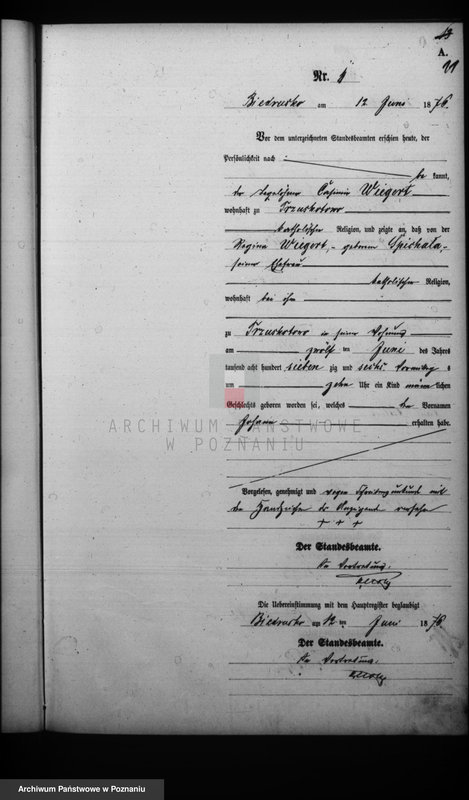 A.
Nr.
Biedrusko am 12 Juni 1876.
Vor dem unterzeichneten Standesbeamten erschien heute, der
Persönlichkeit nach
be kannt,
der Tagelöhner Casimir Wiegort
wohnhaft zu
katholischer Religion, und zeigte an, daß von der
Regina Wiegort, geborenen Spichala,
seiner Ehefrau
katholischer Religion,
wohnhaft bei ihm
zu in seiner Wohnung
am zwölf ten Juni des Jahres
tausend acht hundert sieben zig und sechs Vormittags
um zehn Uhr ein Kind männ lichen
Geschlechts geboren worden sei, welches den Vornamen
Johann erhalten habe.
ARCHIWUM PAŃSTWOWE
W POZNANIU
Vorgelesen, genehmigt und wegen mit
Handzeichen versehen
+ + +
Der Standesbeamte.
In Vertretung:
Die Uebereinstimmung mit dem Hauptregister beglaubigt
Biedrusko am 12 ten Juni 1876.
Der Standesbeamte.
In Vertretung:
Archiwum Państwowe w Poznaniu